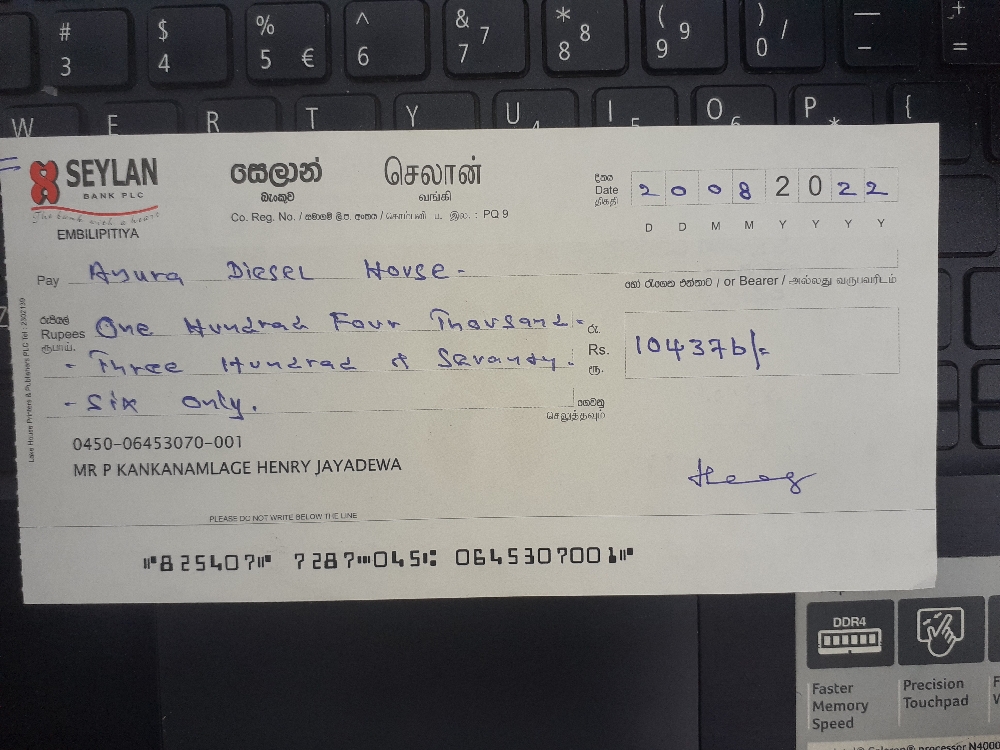 # $ % ^ & * ( ) — +
3 4 5 € 6 7 7 8 8 9 9 0 / - =
W E R T Y U 4 I 5 O 6 P * {
SEYLAN
BANK PLC
The bank with a heart
EMBILIPITIYA
සෙලාන් செலான்
බැංකුව வங்கி
Co. Reg. No. / PQ 9
දිනය
Date
திகதி
2 0 0 8 2 0 2 2
D D M M Y Y Y Y
Pay Ayura Diesel House -
හෝ රැගෙන එන්නාට / or Bearer / அல்லது வருபவரிடம்
රුපියල්
Rupees
ரூபாய்
One Hundrad Four Thousand -
- Three Hundrad & Savandy.
- Six only.
රු.
Rs.
ரூ.
104376/=
ගෙවනු
செலுத்தவும்
0450-06453070-001
MR P KANKANAMLAGE HENRY JAYADEWA
PLEASE DO NOT WRITE BELOW THE LINE
⑈825407⑈ 7287⑉045⑆ 064530700 1⑈
Lake House Printers & Publishers PLC Tel : 2302139
DDR4
Faster
Memory
Speed
Precision
Touchpad
processor N4000